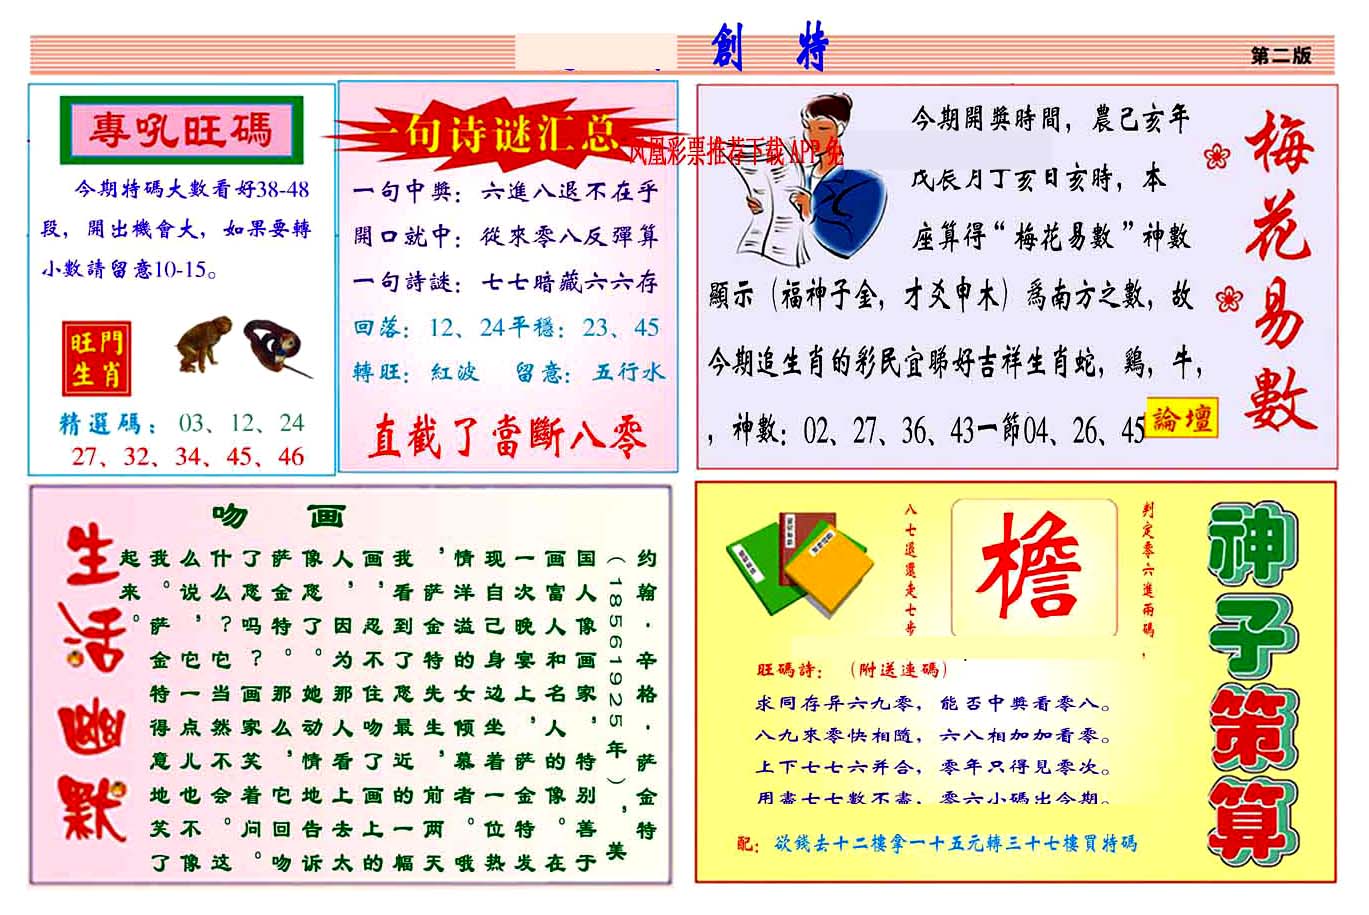 創 特
第二版
專吼旺碼
今期特碼大數看好38-48
段，開出機會大，如果要轉
小數請留意10-15。
旺門
生肖
精選碼：03、12、24
27、32、34、45、46
一句诗谜汇总
凤凰彩票推荐下载APP免
一句中獎：六進八退不在乎
開口就中：從來零八反彈算
一句詩謎：七七暗藏六六存
回落：12、24平穩：23、45
轉旺：紅波 留意：五行水
直截了當斷八零
今期開獎時間，農己亥年
戊辰月丁亥日亥時，本
座算得“梅花易數”神數
顯示（福神子金，才爻申木）為南方之數，故
今期追生肖的彩民宜睇好吉祥生肖蛇，鷄，牛，
，神數：02、27、36、43一節04、26、45
論壇
梅花易數
生活幽默
吻 画
约翰·辛格·萨金特
（18561925年），美
国人像画家，特别善于
画富人和名人的像。在
一次晚宴上，萨金特发
现自己身边坐着一位热
情洋溢的女倾慕者。哦
，萨金特先生，前两天
我看到了您最近的一幅
画，忍不住吻了画上的
人，因为那人看上去太
像您了。她动情地告诉
萨金特。那么，它回吻
了您吗？画家笑着问。
什么？它当然不会。这
么说，它一点儿也不像
我。萨金特得意地笑了
起来。
八七退還走七步
檐
判定零六進兩碼，
旺碼詩：（附送連碼）
求同存异六九零，能否中獎看零八。
八九來零快相隨，六八相加加看零。
上下七七六并合，零年只得見零次。
用盡七七數不盡，零六小碼出今期。
配：欲錢去十二樓拿一十五元轉三十七樓買特碼
神子策算